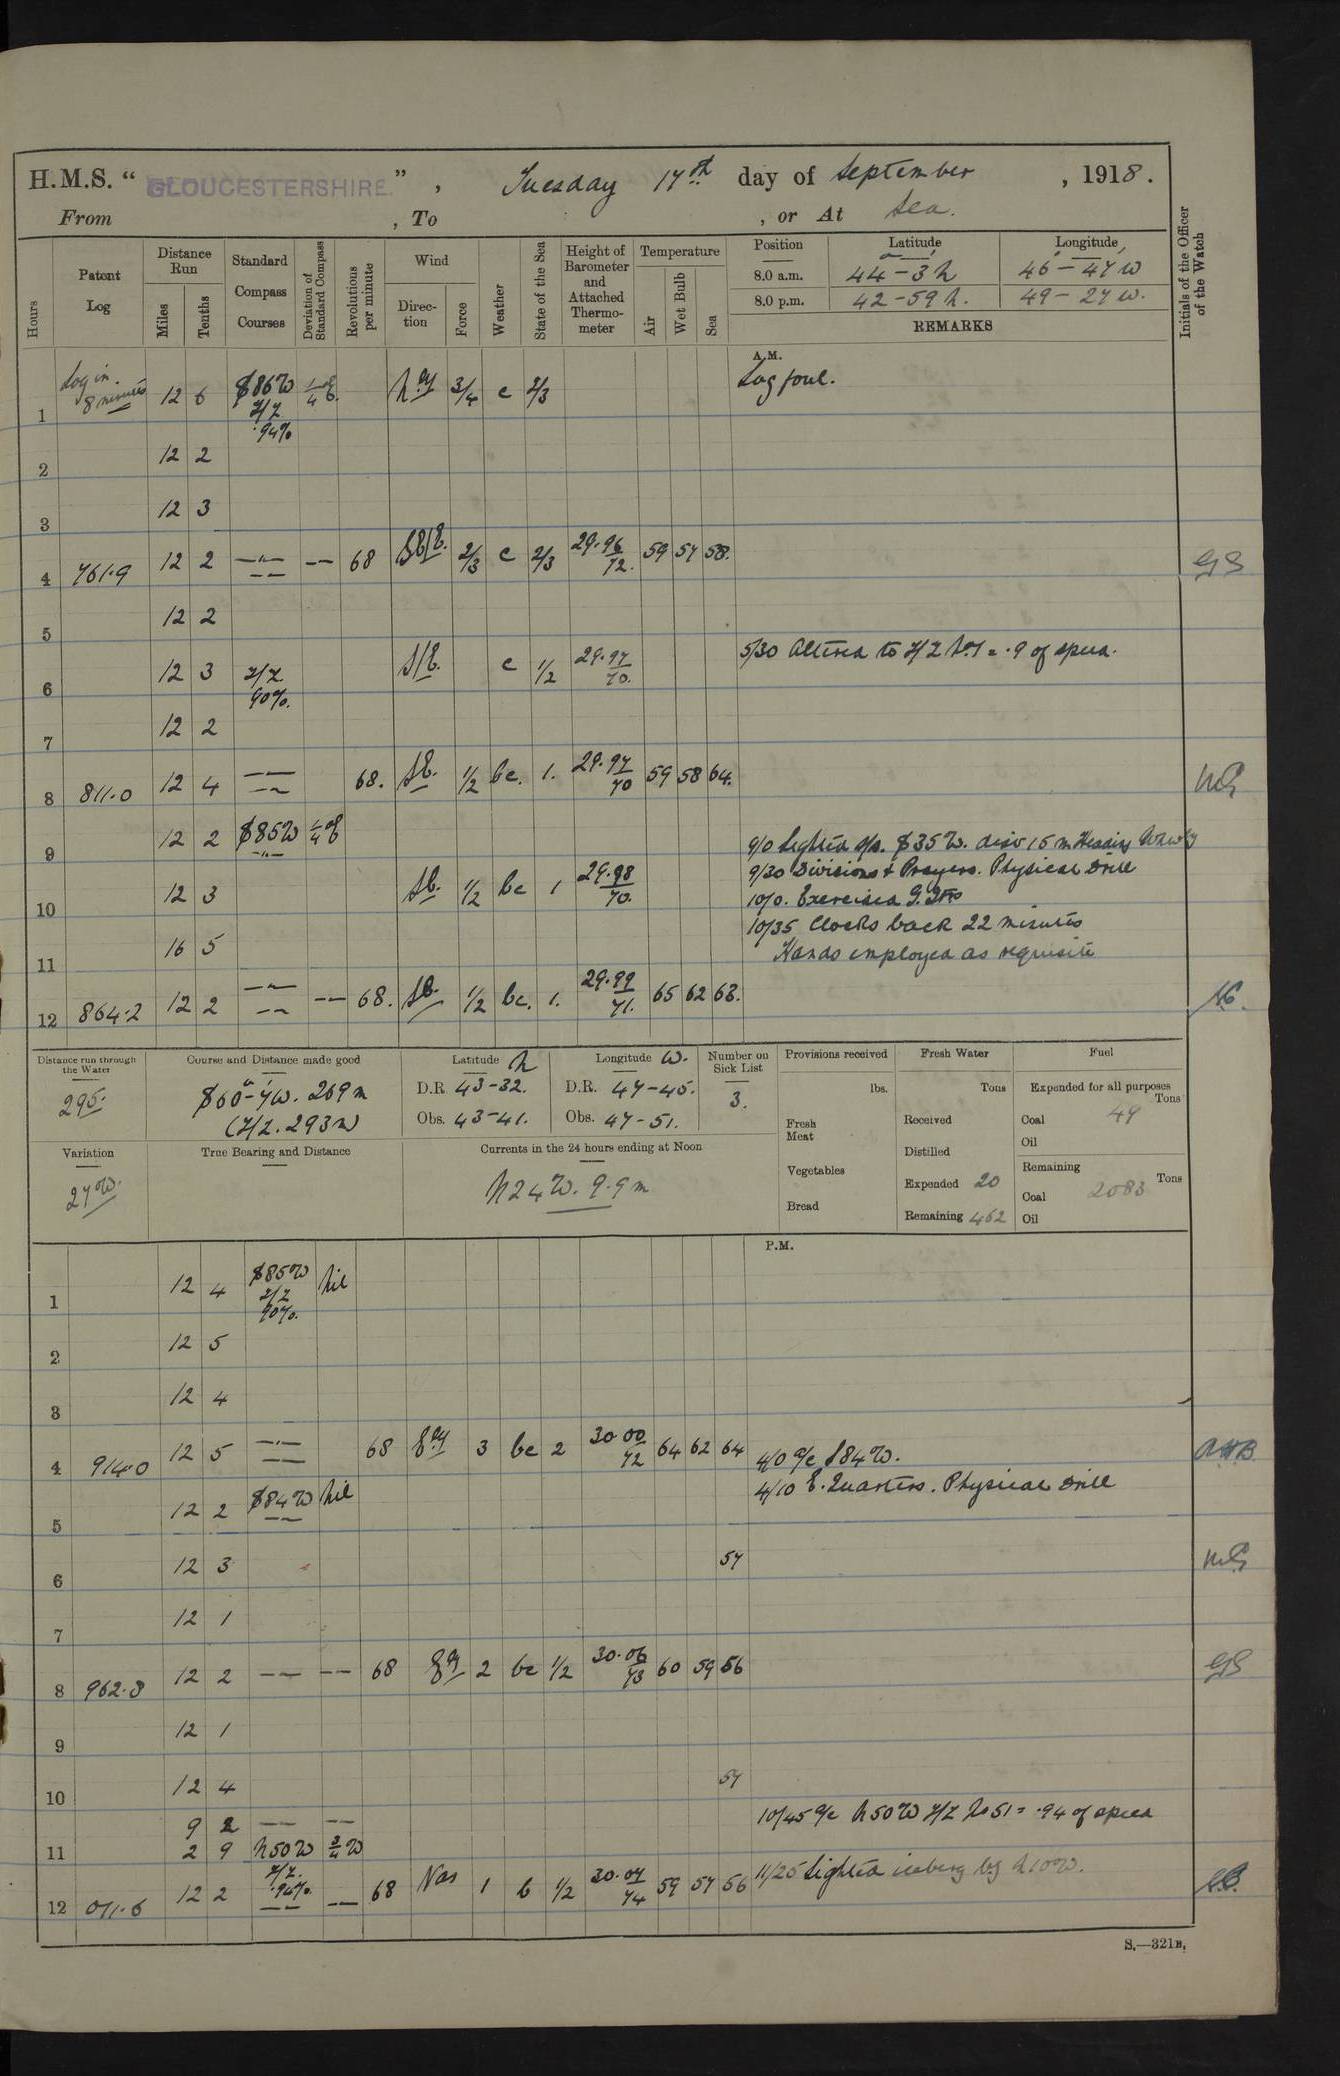 H.M.S. “ GLOUCESTERSHIRE. ” , Tuesday 17th day of September , 1918.
From , To , or At Sea.
Hours
Patent Log
Distance Run
Miles
Tenths
Standard Compass Courses
Deviation of Standard Compass
Revolutions per minute
Wind
Direction
Force
Weather
State of the Sea
Height of Barometer and Attached Thermometer
Temperature
Air
Wet Bulb
Sea
Position Latitude Longitude
8.0 a.m. 44-3 N 46-47 W
8.0 p.m. 42-59 N. 49-27 W.
REMARKS
Initials of the Officer of the Watch
A.M.
1 Log in. 8 minutes 12 6 S86W Z/Z .94% ¼° E. 3/4 c 2/3 Log foul.
2 12 2
3 12 3
4 761.9 12 2 —"— — 68 SE/E. 2/3 c 2/3 29.96 72. 59 57 58. GS
5 12 2
5/30 Altered to Z/Z No1 = .9 of speed.
6 12 3 Z/Z 90%. S/E. c 1/2 29.97 70.
7 12 2
8 811.0 12 4 —"— 68. SE. 1/2 bc. 1. 29.97 70 59 58 64.
9 12 2 S85W ¼°E
9/0 Sighted S35W. dist 15 m Heading
9/30 Divisions & Prayers. Physical Drill
10 12 3 SE. 1/2 bc 1 29.98 70.
10/0. Exercised
10/35 Clocks back 22 minutes
11 16 5
Hands employed as requisite
12 864.2 12 2 —"— — 68. SE. 1/2 bc. 1. 29.99 71. 65 62 63.
Distance run through the Water
295.
Course and Distance made good
S60°-7'W. 269m
(Z/Z. 293m)
Latitude N
D.R 43-32.
Obs. 43-41.
Longitude W.
D.R. 47-45.
Obs. 47-51.
Number on Sick List
3.
Provisions received
lbs.
Fresh Meat
Vegetables
Bread
Fresh Water
Tons
Received
Distilled
Expended 20
Remaining 462
Fuel
Expended for all purposes
Tons
Coal 49
Oil
Remaining
Tons
Coal 2083
Oil
Variation
27°W.
True Bearing and Distance
Currents in the 24 hours ending at Noon
N24W. 9.9m
P.M.
1 12 4 S85W Z/Z 90%. Nil
2 12 5
3 12 4
4 914.0 12 5 —"— 68 Ely 3 bc 2 30.00 72 64 62 64 4/0 a/c S84W. AHB
4/10 E. Quarters. Physical Drill
5 12 2 S84W Nil
6 12 3 57
7 12 1
8 962.8 12 2 — — 68 Ely 2 bc 1/2 30.06 73 60 59 56 GS
9 12 1
10 12 4 57
10/45 a/c N50W Z/Z No 51 = .94 of speed
11 9 2 — —
2 9 N50W ¾W
12 011.6 12 2 Z/Z. .94%. — 68 Nas 1 b 1/2 30.07 74 59 57 56 11/25 Sighted iceberg by N10W.
S.—321B.